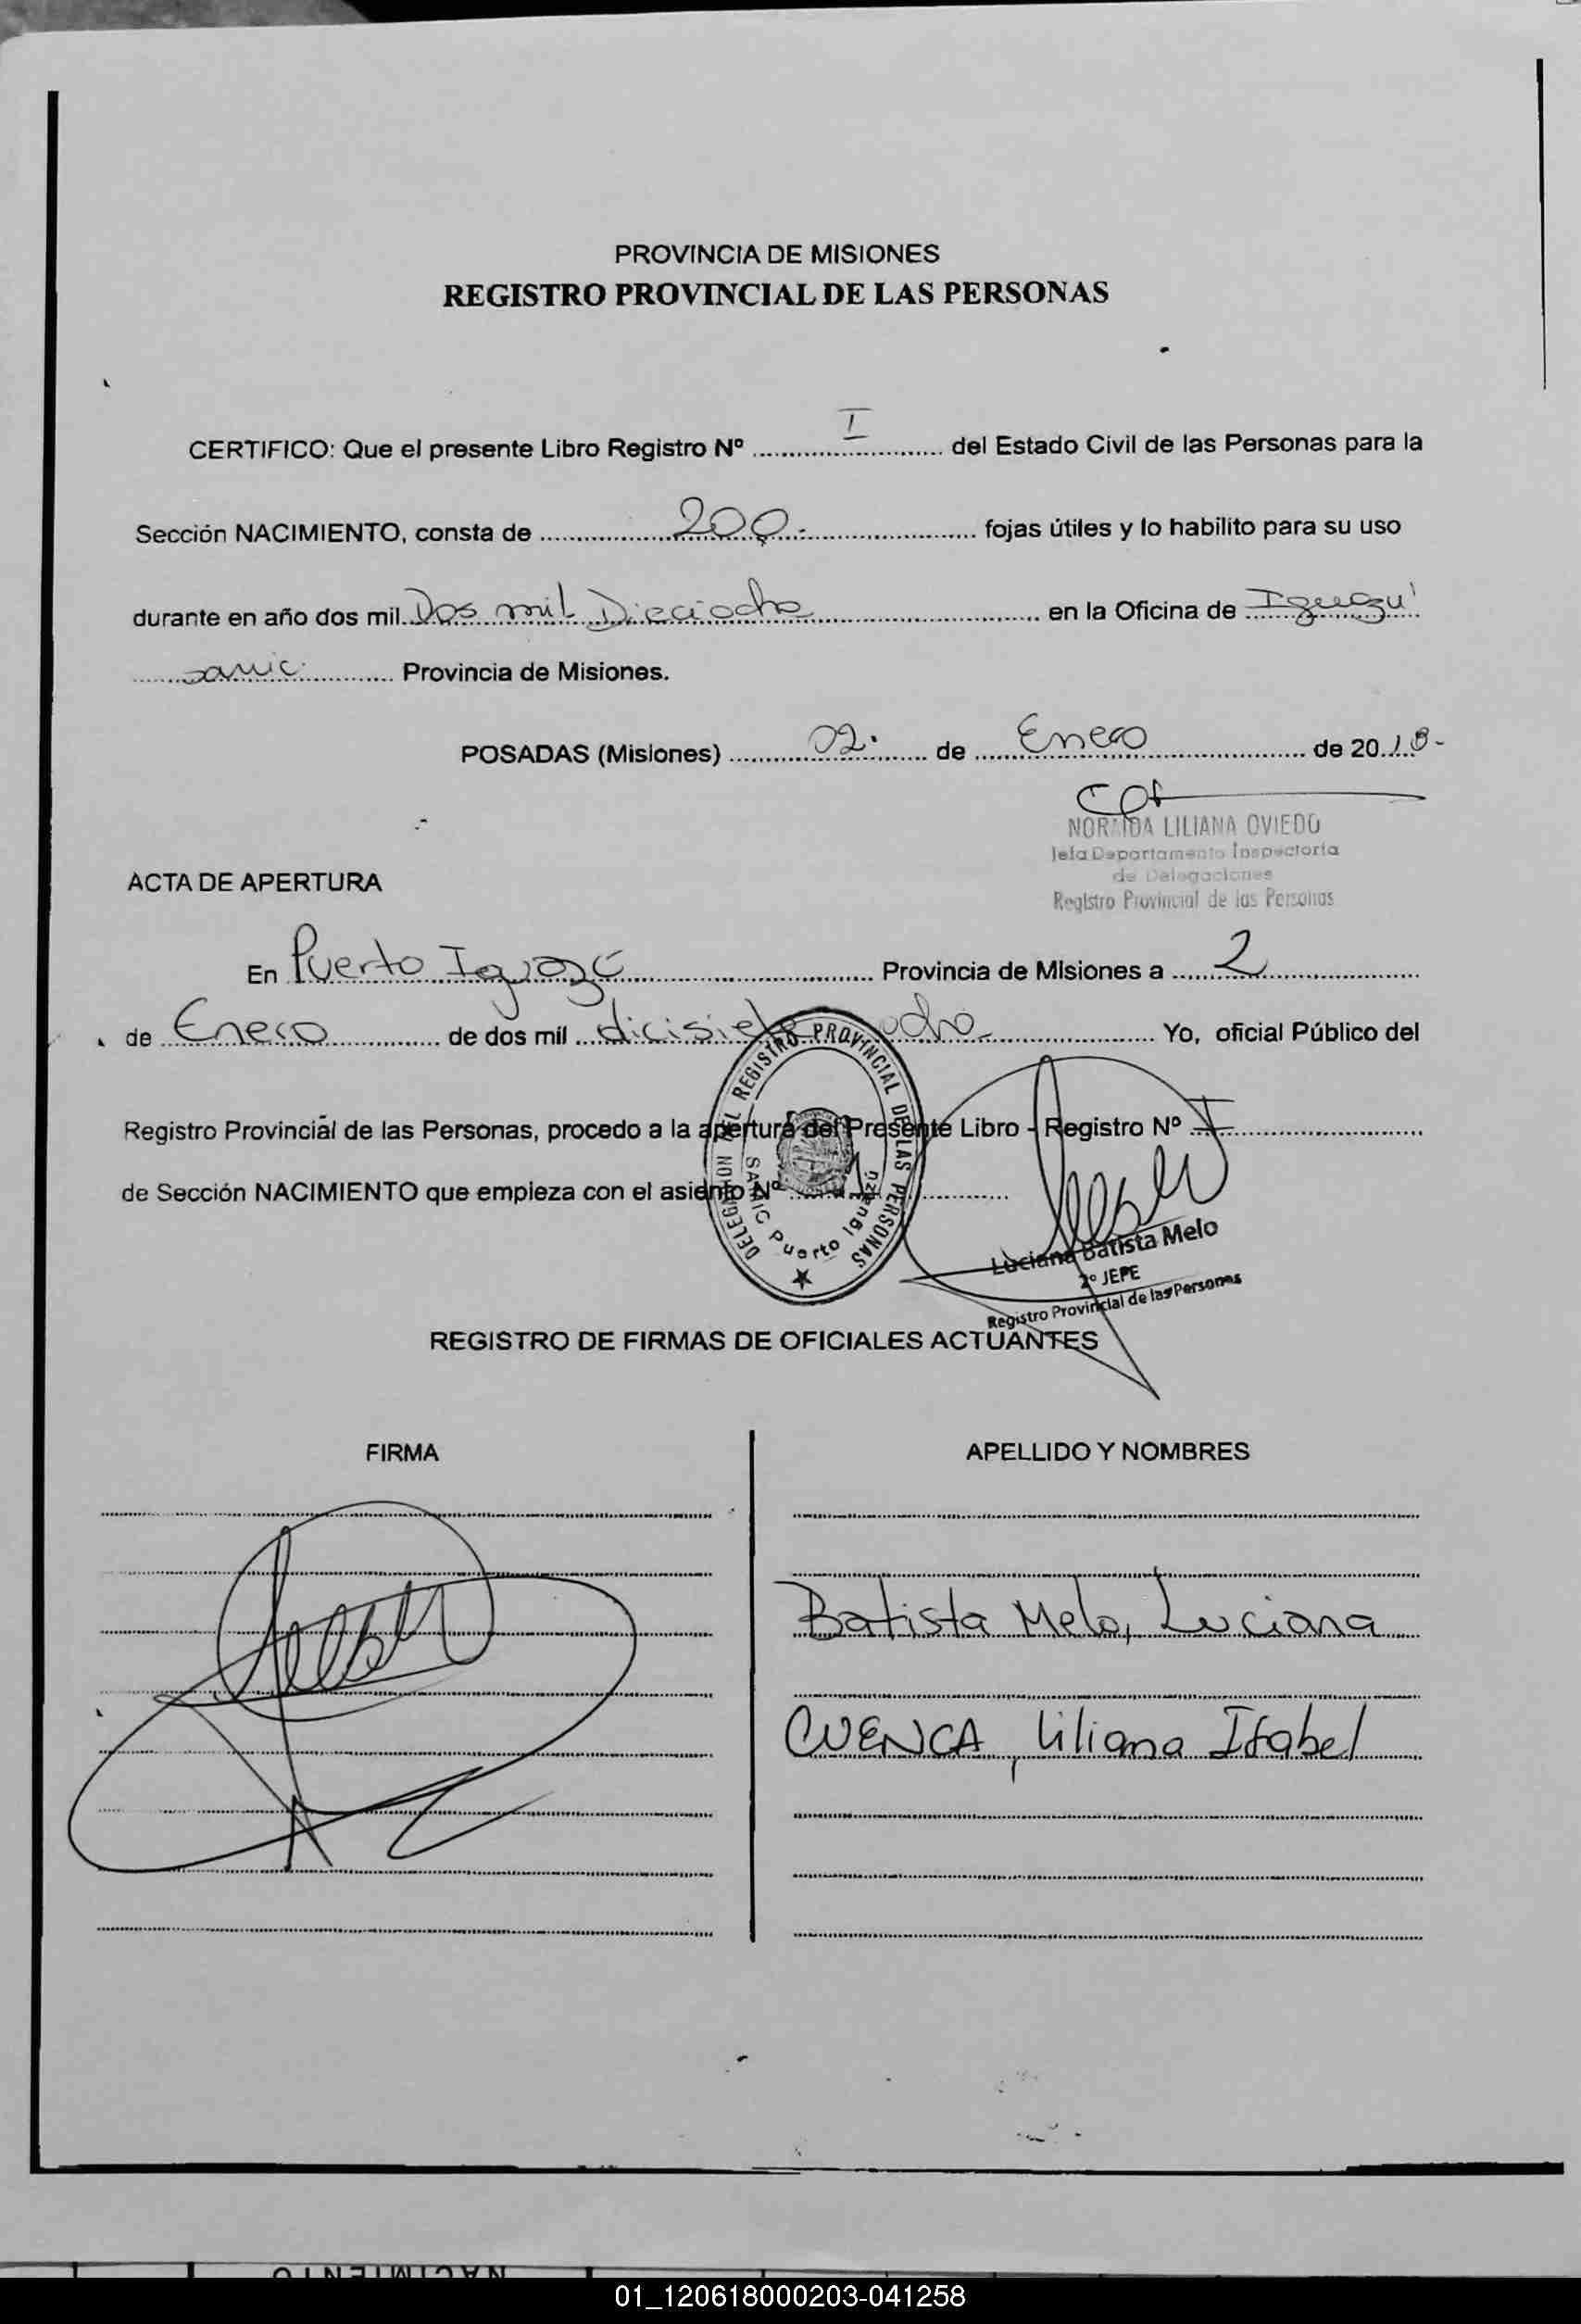 PROVINCIA DE MISIONES
REGISTRO PROVINCIAL DE LAS PERSONAS
CERTIFICO: Que el presente Libro Registro Nº I del Estado Civil de las Personas para la
Sección NACIMIENTO, consta de 200.- fojas útiles y lo habilito para su uso
durante en año dos mil Dos mil Dieciocho en la Oficina de Iguazú
samic. Provincia de Misiones.
POSADAS (Misiones) 02. de Enero de 2018-
NORMDA LILIANA OVIEDO
Jefa Departamento Inspectoría
de Delegaciones
Registro Provincial de las Personas
ACTA DE APERTURA
En Puerto Iguazú Provincia de Misiones a 2
de Enero de dos mil dicisiete ocho Yo, oficial Público del
Registro Provincial de las Personas, procedo a la apertura del Presente Libro - Registro Nº I
de Sección NACIMIENTO que empieza con el asiento Nº 1
DELEGACION DEL REGISTRO PROVINCIAL DE LAS PERSONAS
SAMIC Puerto Iguazú
Luciana Batista Melo
2º JEFE
Registro Provincial de las Personas
REGISTRO DE FIRMAS DE OFICIALES ACTUANTES
FIRMA APELLIDO Y NOMBRES
Batista Melo, Luciana
CUENCA, Liliana Isabel
NACIMIENTO
01_120618000203-041258